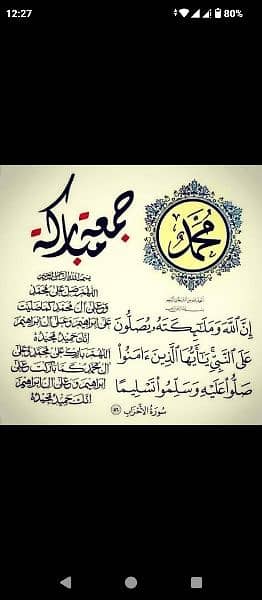 12:27
80%
جمعة مباركة
محمد
بسم الله الرحمن الرحيم
اللهم صل على محمد
وعلى آل محمد كما صليت
على ابراهيم وعلى آل ابراهيم
انك حميد مجيد
اللهم بارك على محمد وعلى
آل محمد كما باركت على
ابراهيم وعلى آل ابراهيم
انك حميد مجيد
إِنَّ اللَّهَ وَمَلَٰٓئِكَتَهُ يُصَلُّونَ
عَلَى النَّبِيِّ يَٰٓأَيُّهَا الَّذِينَ ءَامَنُوا
صَلُّوا عَلَيْهِ وَسَلِّمُوا تَسْلِيمًا
سُورَةُ الأَحْزَابِ ٥٦